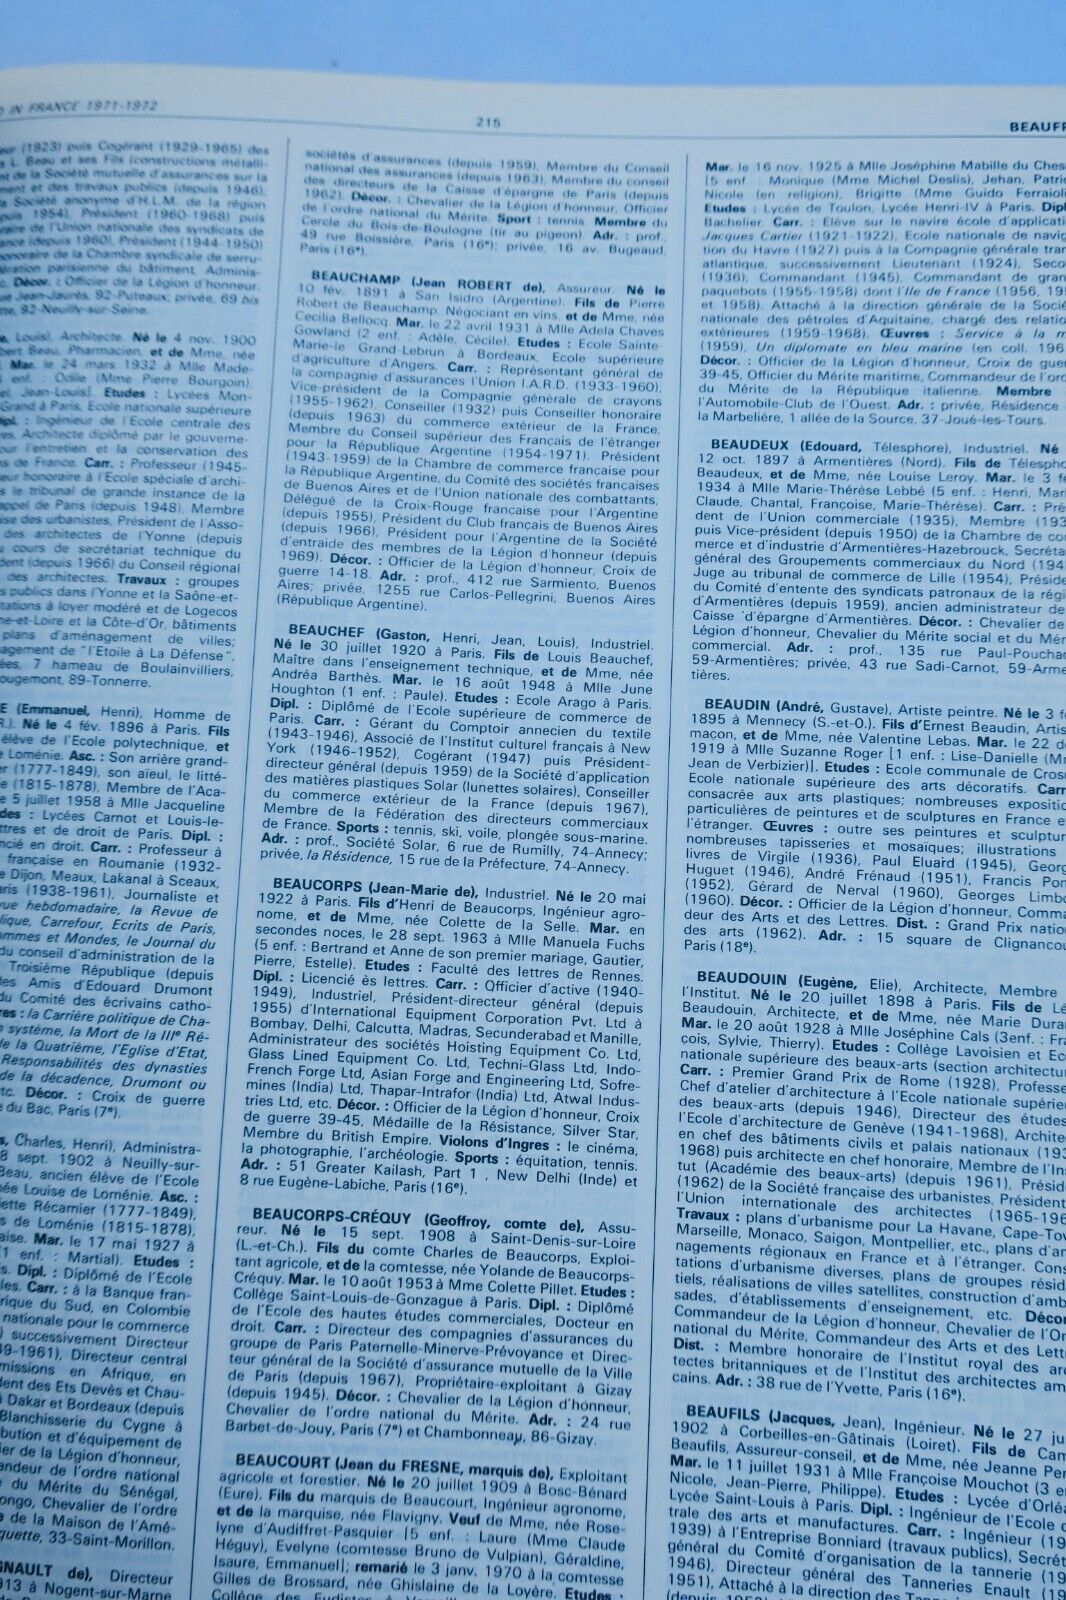 O IN FRANCE 1971-1972
215
BEAUFR
eur (1923) puis Cogérant (1929-1965) des
s L. Beau et ses Fils (constructions métalli-
nt de la Société mutuelle d'assurances sur la
ment et des travaux publics (depuis 1946),
Société anonyme d'H.L.M. de la région
puis 1954), Président (1960-1968) puis
aire de l'Union nationale des syndicats de
ance (depuis 1960), Président (1944-1950)
honoraire de la Chambre syndicale de serru-
ération parisienne du bâtiment, Adminis-
Décor. : Officier de la Légion d'honneur.
ue Jean-Jaurès, 92-Puteaux; privée, 69 bis
tte, 92-Neuilly-sur-Seine.
Louis), Architecte. Né le 4 nov. 1900
bert Beau, Pharmacien, et de Mme, née
Mar. le 24 mars 1932 à Mlle Made-
enf. : Odile (Mme Pierre Bourgoin),
el, Jean-Louis]. Etudes : Lycées Mon-
Grand à Paris, Ecole nationale supérieure
Dipl. : Ingénieur de l'Ecole centrale des
es, Architecte diplômé par le gouverne-
our l'entretien et la conservation des
s de France. Carr. : Professeur (1945-
eur honoraire à l'Ecole spéciale d'archi-
s le tribunal de grande instance de la
appel de Paris (depuis 1948), Membre
ise des urbanistes, Président de l'Asso-
des architectes de l'Yonne (depuis
u cours de secrétariat technique du
dent (depuis 1966) du Conseil régional
des architectes. Travaux : groupes
s publics dans l'Yonne et la Saône-et-
tations à loyer modéré et de Logecos
ne-et-Loire et la Côte-d'Or, bâtiments
plans d'aménagement de villes;
agement de "l'Etoile à La Défense".
ées, 7 hameau de Boulainvilliers,
ougemont, 89-Tonnerre.
E (Emmanuel, Henri), Homme de
R.). Né le 4 fév. 1896 à Paris. Fils
élève de l'Ecole polytechnique, et
e Loménie. Asc. : Son arrière grand-
er (1777-1849), son aïeul, le litté-
e (1815-1878), Membre de l'Aca-
e 5 juillet 1958 à Mlle Jacqueline
des : Lycées Carnot et Louis-le-
ttres et de droit de Paris. Dipl. :
ncié en droit. Carr. : Professeur à
française en Roumanie (1932-
e Dijon, Meaux, Lakanal à Sceaux,
aris (1938-1961), Journaliste et
vue hebdomadaire, la Revue de
lique, Carrefour, Ecrits de Paris,
ommes et Mondes, le Journal du
du conseil d'administration de la
Troisième République (depuis
des Amis d'Edouard Drumont
du Comité des écrivains catho-
res : la Carrière politique de Cha-
n système, la Mort de la IIIe Ré-
de la Quatrième, l'Eglise d'Etat,
Responsabilités des dynasties
de la décadence, Drumont ou
tc. Décor. : Croix de guerre
e du Bac, Paris (7e).
s, Charles, Henri), Administra-
8 sept. 1902 à Neuilly-sur-
Beau, ancien élève de l'Ecole
née Louise de Loménie. Asc. :
iette Récamier (1777-1849),
s de Loménie (1815-1878),
aise. Mar. le 17 mai 1927 à
[1 enf. : Martial]. Etudes :
s. Dipl. : Diplômé de l'Ecole
les. Carr. : à la Banque fran-
rique du Sud, en Colombie
nationale pour le commerce
) successivement Directeur
49-1961), Directeur central
missions en Afrique, en
dent des Ets Devès et Chau-
à Dakar et Bordeaux (depuis
Blanchisserie du Cygne à
bution et d'équipement de
ier de la Légion d'honneur,
andeur de l'ordre national
du Mérite du Sénégal,
ongo, Chevalier de l'ordre
e de la Maison de l'Amé-
guette, 33-Saint-Morillon.
GNAULT de), Directeur
913 à Nogent-sur-Marne
sociétés d'assurances (depuis 1959), Membre du Conseil
national des assurances (depuis 1963), Membre du conseil
des directeurs de la Caisse d'épargne de Paris (depuis
1962). Décor. : Chevalier de la Légion d'honneur, Officier
de l'ordre national du Mérite. Sport : tennis. Membre du
Cercle du Bois-de-Boulogne (tir au pigeon). Adr. : prof.,
49 rue Boissière, Paris (16e); privée, 16 av. Bugeaud,
Paris (16e).
BEAUCHAMP (Jean ROBERT de), Assureur. Né le
10 fév. 1891 à San Isidro (Argentine). Fils de Pierre
Robert de Beauchamp, Négociant en vins, et de Mme, née
Cecilia Bellocq. Mar. le 22 avril 1931 à Mlle Adela Chaves
Gowland (2 enf. : Adèle, Cécile). Etudes : Ecole Sainte-
Marie-le Grand-Lebrun à Bordeaux, Ecole supérieure
d'agriculture d'Angers. Carr. : Représentant général de
la compagnie d'assurances l'Union I.A.R.D. (1933-1960),
Vice-président de la Compagnie générale de crayons
(1955-1962), Conseiller (1932) puis Conseiller honoraire
(depuis 1963) du commerce extérieur de la France,
Membre du Conseil supérieur des Français de l'étranger
pour la République Argentine (1954-1971), Président
(1943-1959) de la Chambre de commerce française pour
la République Argentine, du Comité des sociétés françaises
de Buenos Aires et de l'Union nationale des combattants,
Délégué de la Croix-Rouge française pour l'Argentine
(depuis 1955), Président du Club français de Buenos Aires
(depuis 1966), Président pour l'Argentine de la Société
d'entraide des membres de la Légion d'honneur (depuis
1969). Décor. : Officier de la Légion d'honneur, Croix de
guerre 14-18. Adr. : prof., 412 rue Sarmiento, Buenos
Aires; privée, 1255 rue Carlos-Pellegrini, Buenos Aires
(République Argentine).
BEAUCHEF (Gaston, Henri, Jean, Louis), Industriel.
Né le 30 juillet 1920 à Paris. Fils de Louis Beauchef,
Maître dans l'enseignement technique, et de Mme, née
Andréa Barthès. Mar. le 16 août 1948 à Mlle June
Houghton (1 enf. : Paule). Etudes : Ecole Arago à Paris.
Dipl. : Diplômé de l'Ecole supérieure de commerce de
Paris. Carr. : Gérant du Comptoir annecien du textile
(1943-1946), Associé de l'Institut culturel français à New
York (1946-1952), Cogérant (1947) puis Président-
directeur général (depuis 1959) de la Société d'application
des matières plastiques Solar (lunettes solaires), Conseiller
du commerce extérieur de la France (depuis 1967),
Membre de la Fédération des directeurs commerciaux
de France. Sports : tennis, ski, voile, plongée sous-marine.
Adr. : prof., Société Solar, 6 rue de Rumilly, 74-Annecy;
privée, la Résidence, 15 rue de la Préfecture, 74-Annecy.
BEAUCORPS (Jean-Marie de), Industriel. Né le 20 mai
1922 à Paris. Fils d'Henri de Beaucorps, Ingénieur agro-
nome, et de Mme, née Colette de la Selle. Mar. en
secondes noces, le 28 sept. 1963 à Mlle Manuela Fuchs
(5 enf. : Bertrand et Anne de son premier mariage, Gautier,
Pierre, Estelle). Etudes : Faculté des lettres de Rennes.
Dipl. : Licencié ès lettres. Carr. : Officier d'active (1940-
1949), Industriel, Président-directeur général (depuis
1955) d'International Equipment Corporation Pvt. Ltd à
Bombay, Delhi, Calcutta, Madras, Secunderabad et Manille,
Administrateur des sociétés Hoisting Equipment Co. Ltd,
Glass Lined Equipment Co. Ltd, Techni-Glass Ltd, Indo-
French Forge Ltd, Asian Forge and Engineering Ltd, Sofre-
mines (India) Ltd, Thapar-Intrafor (India) Ltd, Atwal Indus-
tries Ltd, etc. Décor. : Officier de la Légion d'honneur, Croix
de guerre 39-45, Médaille de la Résistance, Silver Star,
Membre du British Empire. Violons d'Ingres : le cinéma,
la photographie, l'archéologie. Sports : équitation, tennis.
Adr. : 51 Greater Kailash, Part 1 , New Delhi (Inde) et
8 rue Eugène-Labiche, Paris (16e).
BEAUCORPS-CRÉQUY (Geoffroy, comte de), Assu-
reur. Né le 15 sept. 1908 à Saint-Denis-sur-Loire
(L.-et-Ch.). Fils du comte Charles de Beaucorps, Exploi-
tant agricole, et de la comtesse, née Yolande de Beaucorps-
Créquy. Mar. le 10 août 1953 à Mme Colette Pillet. Etudes :
Collège Saint-Louis-de-Gonzague à Paris. Dipl. : Diplômé
de l'Ecole des hautes études commerciales, Docteur en
droit. Carr. : Directeur des compagnies d'assurances du
groupe de Paris Paternelle-Minerve-Prévoyance et Direc-
teur général de la Société d'assurance mutuelle de la Ville
de Paris (depuis 1967), Propriétaire-exploitant à Gizay
(depuis 1945). Décor. : Chevalier de la Légion d'honneur,
Chevalier de l'ordre national du Mérite. Adr. : 24 rue
Barbet-de-Jouy, Paris (7e) et Chambonneau, 86-Gizay.
BEAUCOURT (Jean du FRESNE, marquis de), Exploitant
agricole et forestier. Né le 20 juillet 1909 à Bosc-Bénard
(Eure). Fils du marquis de Beaucourt, Ingénieur agronome,
et de la marquise, née Flavigny. Veuf de Mme, née Rose-
lyne d'Audiffret-Pasquier [5 enf. : Laure (Mme Claude
Héguy), Evelyne (comtesse Bruno de Vulpian), Géraldine,
Isaure, Emmanuel]; remarié le 3 janv. 1970 à la comtesse
Gilles de Brossard, née Ghislaine de la Loyère. Etudes :
Collège des Eudistes à
Mar. le 16 nov. 1925 à Mlle Joséphine Mabille du Ches
[5 enf. : Monique (Mme Michel Deslis), Jehan, Patrie
Nicole (en religion), Brigitte (Mme Guido Ferraiolo
Etudes : Lycée de Toulon, Lycée Henri-IV à Paris. Dipl
Bachelier. Carr. : Elève sur le navire école d'applicati
Jacques Cartier (1921-1922), Ecole nationale de navig
tion du Havre (1927) puis à la Compagnie générale tran
atlantique, successivement Lieutenant (1924), Seco
(1936), Commandant (1945), Commandant de gran
paquebots (1955-1958) dont l'Ile de France (1956, 195
et 1958). Attaché à la direction générale de la Socié
nationale des pétroles d'Aquitaine, chargé des relatio
extérieures (1959-1968). Œuvres : Service à la m
(1959), Un diplomate en bleu marine (en coll. 196
Décor. : Officier de la Légion d'honneur, Croix de gue
39-45, Officier du Mérite maritime, Commandeur de l'ord
du Mérite de la République italienne. Membre
l'Automobile-Club de l'Ouest. Adr. : privée, Résidence
la Marbelière, 1 allée de la Source, 37-Joué-les-Tours.
BEAUDEUX (Edouard, Télesphore), Industriel. Né
12 oct. 1897 à Armentières (Nord). Fils de Télespho
Beaudeux, et de Mme, née Louise Leroy. Mar. le 3 fe
1934 à Mlle Marie-Thérèse Lebbé (5 enf. : Henri, Mari
Claude, Chantal, Françoise, Marie-Thérèse). Carr. : Pré
dent de l'Union commerciale (1935), Membre (193
puis Vice-président (depuis 1950) de la Chambre de co
merce et d'industrie d'Armentières-Hazebrouck, Secréta
général des Groupements commerciaux du Nord (194
Juge au tribunal de commerce de Lille (1954), Préside
du Comité d'entente des syndicats patronaux de la régi
d'Armentières (depuis 1959), ancien administrateur de
Caisse d'épargne d'Armentières. Décor. : Chevalier de
Légion d'honneur, Chevalier du Mérite social et du Mé
commercial. Adr. : prof., 135 rue Paul-Pouchai
59-Armentières; privée, 43 rue Sadi-Carnot, 59-Arme
tières.
BEAUDIN (André, Gustave), Artiste peintre. Né le 3 fe
1895 à Mennecy (S.-et-O.). Fils d'Ernest Beaudin, Artis
maçon, et de Mme, née Valentine Lebas. Mar. le 22 de
1919 à Mlle Suzanne Roger [1 enf. : Lise-Danielle (Mm
Jean de Verbizier)]. Etudes : Ecole communale de Cros
Ecole nationale supérieure des arts décoratifs. Carr
consacrée aux arts plastiques; nombreuses expositio
particulières de peintures et de sculptures en France et
l'étranger. Œuvres : outre ses peintures et sculptur
nombreuses tapisseries et mosaïques; illustrations
livres de Virgile (1936), Paul Eluard (1945), Georg
Huguet (1946), André Frénaud (1951), Francis Pon
(1952), Gérard de Nerval (1960), Georges Limbo
(1960). Décor. : Officier de la Légion d'honneur, Comma
deur des Arts et des Lettres. Dist. : Grand Prix nation
des arts (1962). Adr. : 15 square de Clignancou
Paris (18e).
BEAUDOUIN (Eugène, Elie), Architecte, Membre
l'Institut. Né le 20 juillet 1898 à Paris. Fils de Lé
Beaudouin, Architecte, et de Mme, née Marie Duran
Mar. le 20 août 1928 à Mlle Joséphine Cals (3enf. : Fra
çois, Sylvie, Thierry). Etudes : Collège Lavoisien et Eco
nationale supérieure des beaux-arts (section architectur
Carr. : Premier Grand Prix de Rome (1928), Professe
Chef d'atelier d'architecture à l'Ecole nationale supérieu
des beaux-arts (depuis 1946), Directeur des études
l'Ecole d'architecture de Genève (1941-1968), Architec
en chef des bâtiments civils et palais nationaux (193
1968) puis architecte en chef honoraire, Membre de l'Ins
tut (Académie des beaux-arts) (depuis 1961), Préside
(1962) de la Société française des urbanistes, Président
l'Union internationale des architectes (1965-196
Travaux : plans d'urbanisme pour La Havane, Cape-Tow
Marseille, Monaco, Saigon, Montpellier, etc., plans d'am
nagements régionaux en France et à l'étranger. Cons
tations d'urbanisme diverses, plans de groupes résid
tiels, réalisations de villes satellites, construction d'amb
sades, d'établissements d'enseignement, etc. Décor
Commandeur de la Légion d'honneur, Chevalier de l'Or
national du Mérite, Commandeur des Arts et des Lettr
Dist. : Membre honoraire de l'Institut royal des arc
tectes britanniques et de l'Institut des architectes am
cains. Adr. : 38 rue de l'Yvette, Paris (16e).
BEAUFILS (Jacques, Jean), Ingénieur. Né le 27 ju
1902 à Corbeilles-en-Gâtinais (Loiret). Fils de Cam
Beaufils, Assureur-conseil, et de Mme, née Jeanne Per
Mar. le 11 juillet 1931 à Mlle Françoise Mouchot (3 en
Nicole, Jean-Pierre, Philippe). Etudes : Lycée d'Orléa
Lycée Saint-Louis à Paris. Dipl. : Ingénieur de l'Ecole c
trale des arts et manufactures. Carr. : Ingénieur (19
1939) à l'Entreprise Bonniard (travaux publics), Secrét
général du Comité d'organisation de la tannerie (19
1946), Directeur général des Tanneries Enault (19
1951), Attaché à la direction des Tann